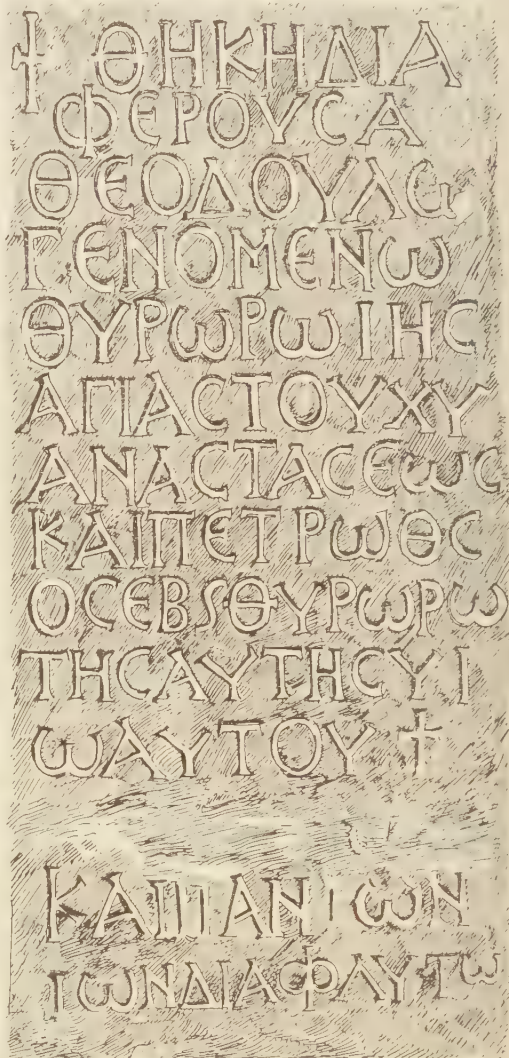 † ΘΗΚΗΔΙΑ
ΦΕΡΟΥCΑ
ΘΕΟΔΟΥΛω
ΓΕΝΟΜΕΝω
ΘΥΡωΡωΙΗC
ΑΓΙΑCΤΟΥΧΥ
ΑΝΑCΤΑCΕωC
ΚΑΙΠΕΤΡωΘC
ΟCΕΒSΘΥΡωΡω
ΤΗCΑΥΤΗCΥΙ
ωΑΥΤΟΥ †
ΚΑΙΠΑΝΙωΝ
ΙωΝΔΙΑΦΛΥΤω